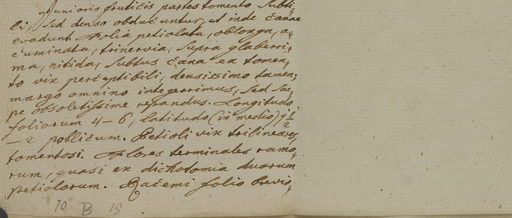 juniores fruticis partes tomento subti-
li, sed denso obducuntur, et inde canae
evadunt. Folia petiolata, oblonga, a-
cuminata, trinervia, supra glaberri-
ma, nitida, subtus cana ex tomen-
to vix perceptibili, densissimo tamen;
margo omnino integerrimus, sed sae-
pe obsoletissime repandus. Longitudo
foliorum 4-6, latitudo (in medio) 1½
-2 pollicum. Petioli vix trilineares,
tomentosi. Flores terminales ramo-
rum, quasi ex dichotomia duarum
petiolorum. Racemi folio brevio-
10 B 15